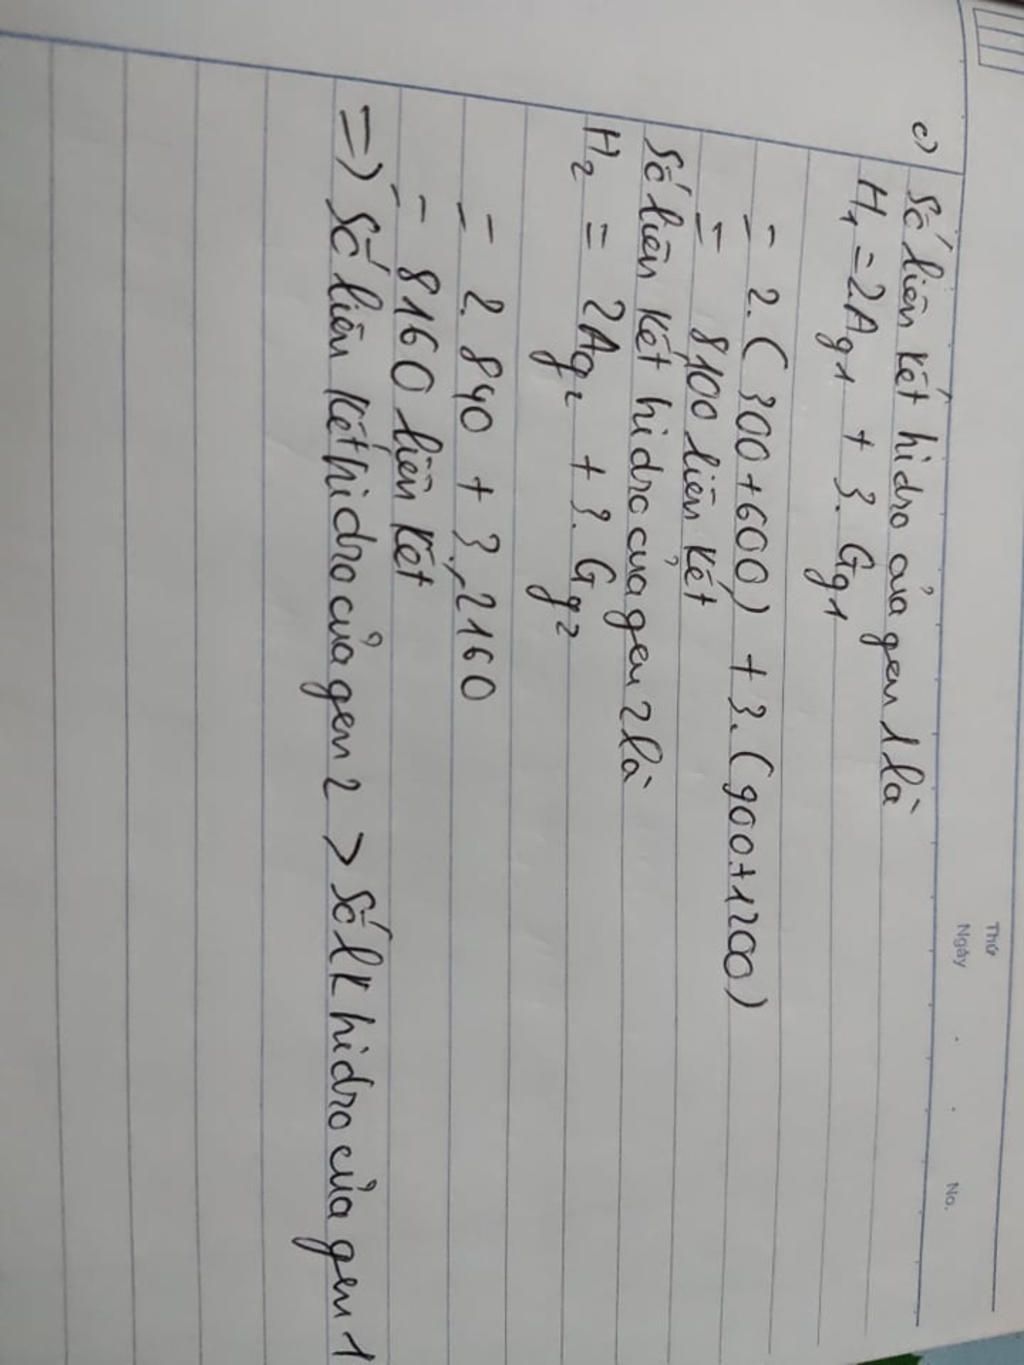 Thứ
Ngày . . No.
c) Số liên kết hidro của gen 1 là
H1 = 2Ag1 + 3. Gg1
= 2. (300+600) + 3. (900+1200)
= 8100 liên kết
Số liên kết hidro của gen 2 là
H2 = 2Ag2 + 3. Gg2
= 2. 840 + 3. 2160
= 8160 liên kết
=> Số liên kết hidro của gen 2 > Số lk hidro của gen 1